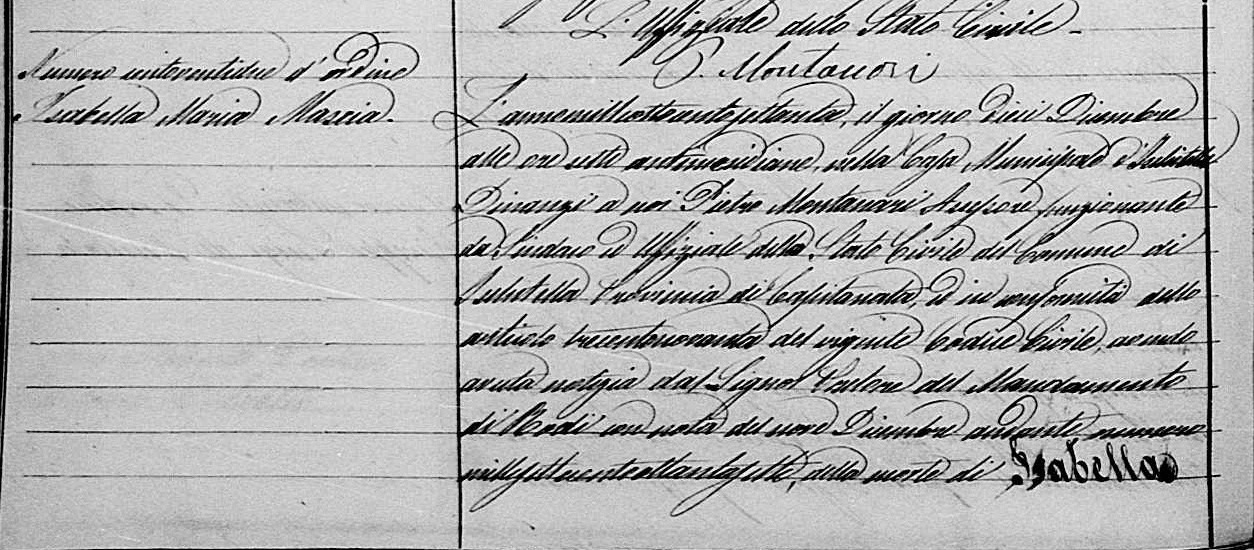 L'Uffiziale dello Stato Civile -
P. Montanari
Numero ventiventidue d'ordine
Isabella Maria Mascia -
L'annomillottocentosettanta, il giorno dieci Dicembre
alle ore sette antimeridiane, nella Casa Municipale d'Ischitella
Dinanzi a noi Pietro Montanari Assessore funzionante
da Sindaco ed Uffiziale dello Stato Civile del Comune di
Ischitella Provincia di Capitanata, ed in conformità dello
articolo trecentonovanta del vigente Codice Civile, avendo
avuta notizia dal Signor Pretore del Mandamento
di Rodi con nota del nove Dicembre andante numero
millesettecentottantasette, della morte di Isabella